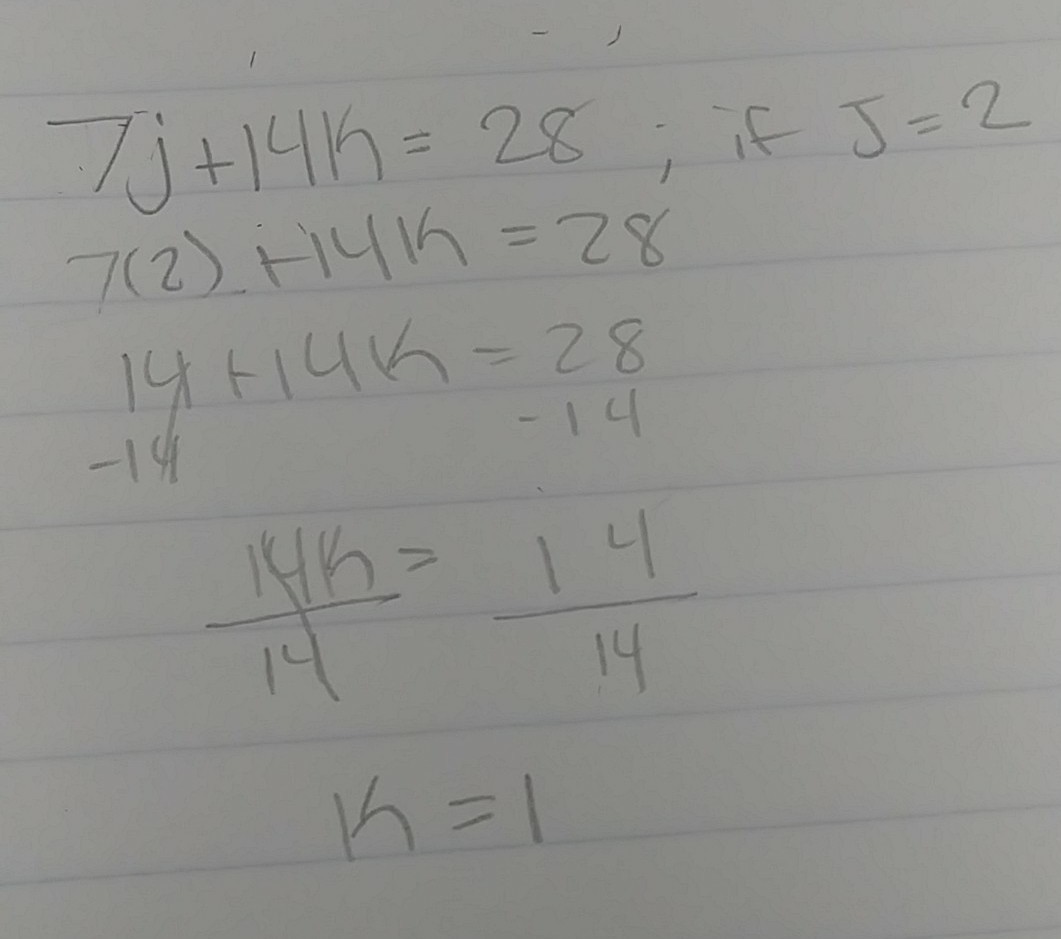 7j+14k = 28 ; if J = 2
7(2) +14k = 28
14 +14k = 28
-14 -14
14k = 14
14 14
k = 1